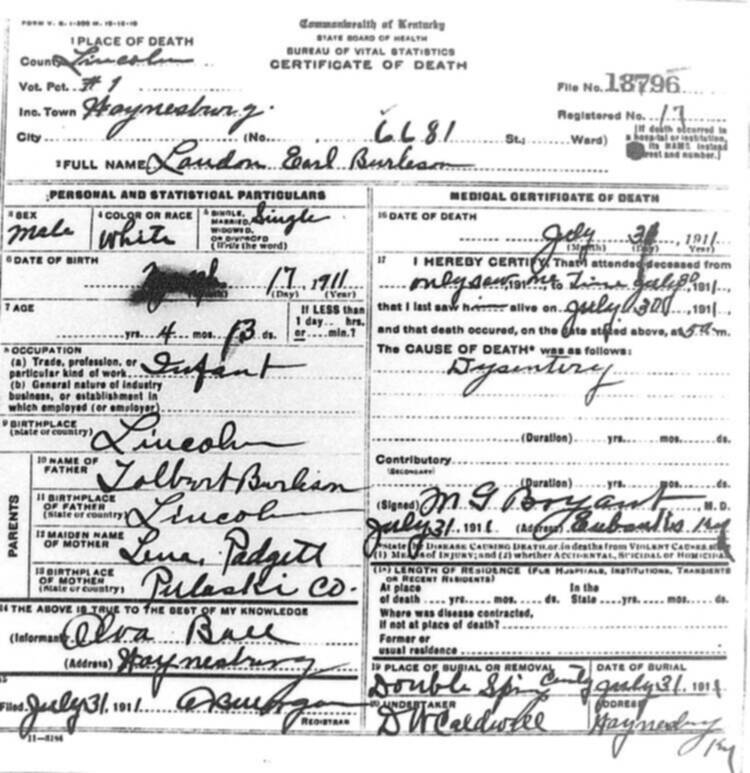 FORM V. S. 1-
Commonwealth of Kentucky
STATE BOARD OF HEALTH
BUREAU OF VITAL STATISTICS
CERTIFICATE OF DEATH
1 PLACE OF DEATH
County Lincoln
Vot. Pct. #1
Inc. Town Waynesburg
City (No. 6681 St.; Ward)
File No. 18796
Registered No. 17
[If death occurred in a hospital or institution, its NAME instead street and number.]
2 FULL NAME Landon Earl Burleson
PERSONAL AND STATISTICAL PARTICULARS
3 SEX Male
4 COLOR OR RACE White
5 SINGLE, MARRIED, WIDOWED, OR DIVORCED (Write the word) Single
6 DATE OF BIRTH
17 1911
(Month) (Day) (Year)
7 AGE
yrs. 4 mos. 13 ds.
If LESS than 1 day hrs. or min.?
8 OCCUPATION
(a) Trade, profession, or particular kind of work Infant
(b) General nature of industry business, or establishment in which employed (or employer)
9 BIRTHPLACE (State or country) Lincoln
PARENTS
10 NAME OF FATHER Tolbert Burlison
11 BIRTHPLACE OF FATHER (State or country) Lincoln
12 MAIDEN NAME OF MOTHER Lena Padgett
13 BIRTHPLACE OF MOTHER (State or country) Pulaski Co.
14 THE ABOVE IS TRUE TO THE BEST OF MY KNOWLEDGE
(Informant) Alva Ball
(Address) Waynesburg
15
Filed July 31 1911
REGISTRAR
11-8184
MEDICAL CERTIFICATE OF DEATH
16 DATE OF DEATH
July 31, 1911
(Month) (Day) (Year)
17 I HEREBY CERTIFY, That I attended deceased from
only saw one Time July 30, 1911
that I last saw him alive on July 30, 1911
and that death occured, on the date stated above, at 5 a m.
The CAUSE OF DEATH* was as follows:
Dysintery
(Duration) yrs. mos. ds.
Contributory (SECONDARY)
(Duration) yrs. mos. ds.
(Signed) M G Bryant M.D.
July 31 1911 (Address) Eubanks Ky
*State the DISEASE CAUSING DEATH, or, in deaths from VIOLENT CAUSES, state
(1) MEANS OF INJURY; and (2) whether ACCIDENTAL, SUICIDAL or HOMICIDAL
LENGTH OF RESIDENCE (FOR HOSPITALS, INSTITUTIONS, TRANSIENTS OR RECENT RESIDENTS)
At place of death yrs. mos. ds. In the State yrs. mos. ds.
Where was disease contracted,
If not at place of death?
Former or usual residence
19 PLACE OF BURIAL OR REMOVAL Double Spring
DATE OF BURIAL July 31, 1911
20 UNDERTAKER D W Caldwell
ADDRESS Waynesburg Ky